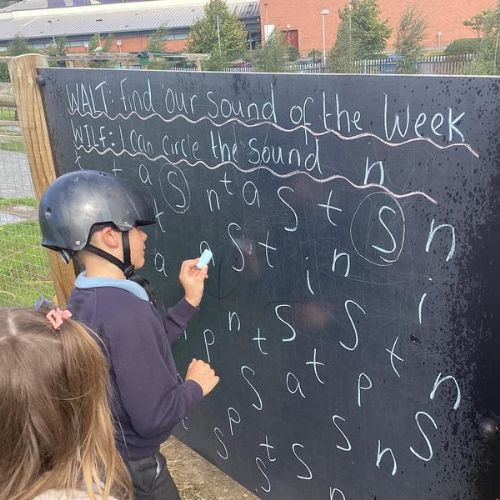 WALT: find our sound of the Week
WILF: I can circle the sound
t t a s n t a s t s n n
t a s s t i n i
p n t s s t
s a t p n
s p t s s n s
s n